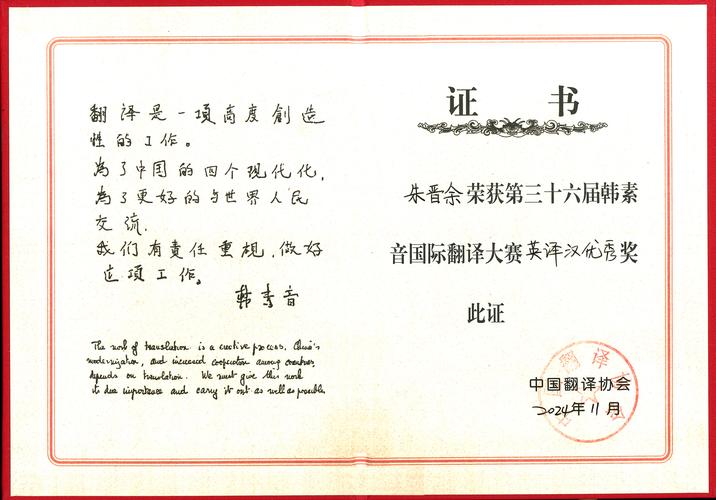 翻译是一項高度創造
性的工作。
为了中国的四个现代化,
为了更好的与世界人民
交流,
我们有責任重視,做好
这項工作。
韩素音
The work of translation is a creative process. China's
modernization, and increased cooperation among countries,
depends on translation. We must give this work
its due importance and carry it out as well as possible.
证书
朱晋余荣获第三十六届韩素
音国际翻译大赛英译汉优秀奖
此证
中国翻译协会
2024年11月